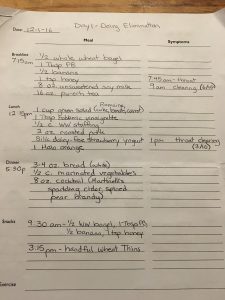 Day 1 - Dairy Elimination
Date: 12-5-16
Meal Symptoms
Breakfast
7:15am
1/2 whole wheat bagel
1 Tbsp PB
1/2 banana
1 tsp honey 7:45 am - throat
8 oz unsweetened soy milk 9am clearing
16 oz pu-erh tea
Lunch
12:15pm
1 cup green salad
1 Tbsp balsamic vinaigrette
1/2 c. WW stuffing
2 oz roasted
Silk dairy-free strawberry yogurt 1pm throat clearing
1 Halo orange
Dinner
5:30p
3-4 oz. bread (white)
1/2 c. marinated vegetables
8 oz. cocktail (Martinelli's
sparkling cider, spiced
pear brandy)
Snacks
9:30 am - 1/2 WW bagel, 1 Tbsp PB,
1/2 banana, 1 tsp honey
3:15pm - handful Wheat Thins
Exercise